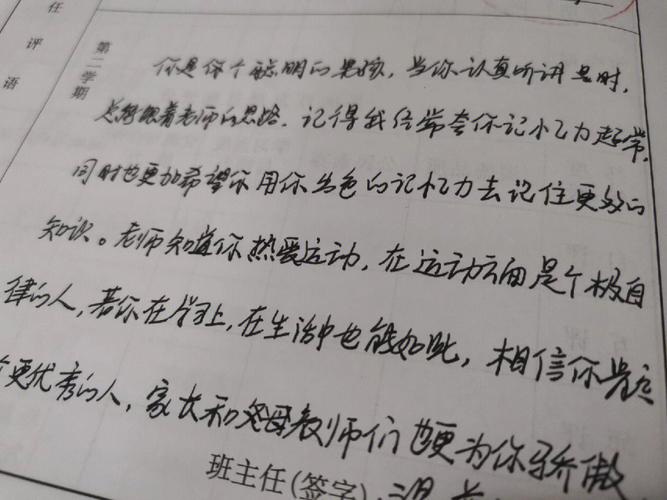 任
评
语
第二学期
你是你个聪明的男孩，当你认真听讲是时，
总能跟着老师的思路。记得我经常夸你记忆力超常，
同时也更加希望你用你出色的记忆力去记住更多的
知识。老师知道你热爱运动，在运动方面是个极自
律的人，若你在学习上，在生活中也能如此，相信你
更优秀的人，家大和父母教师们也更为你骄傲
班主任(签字)